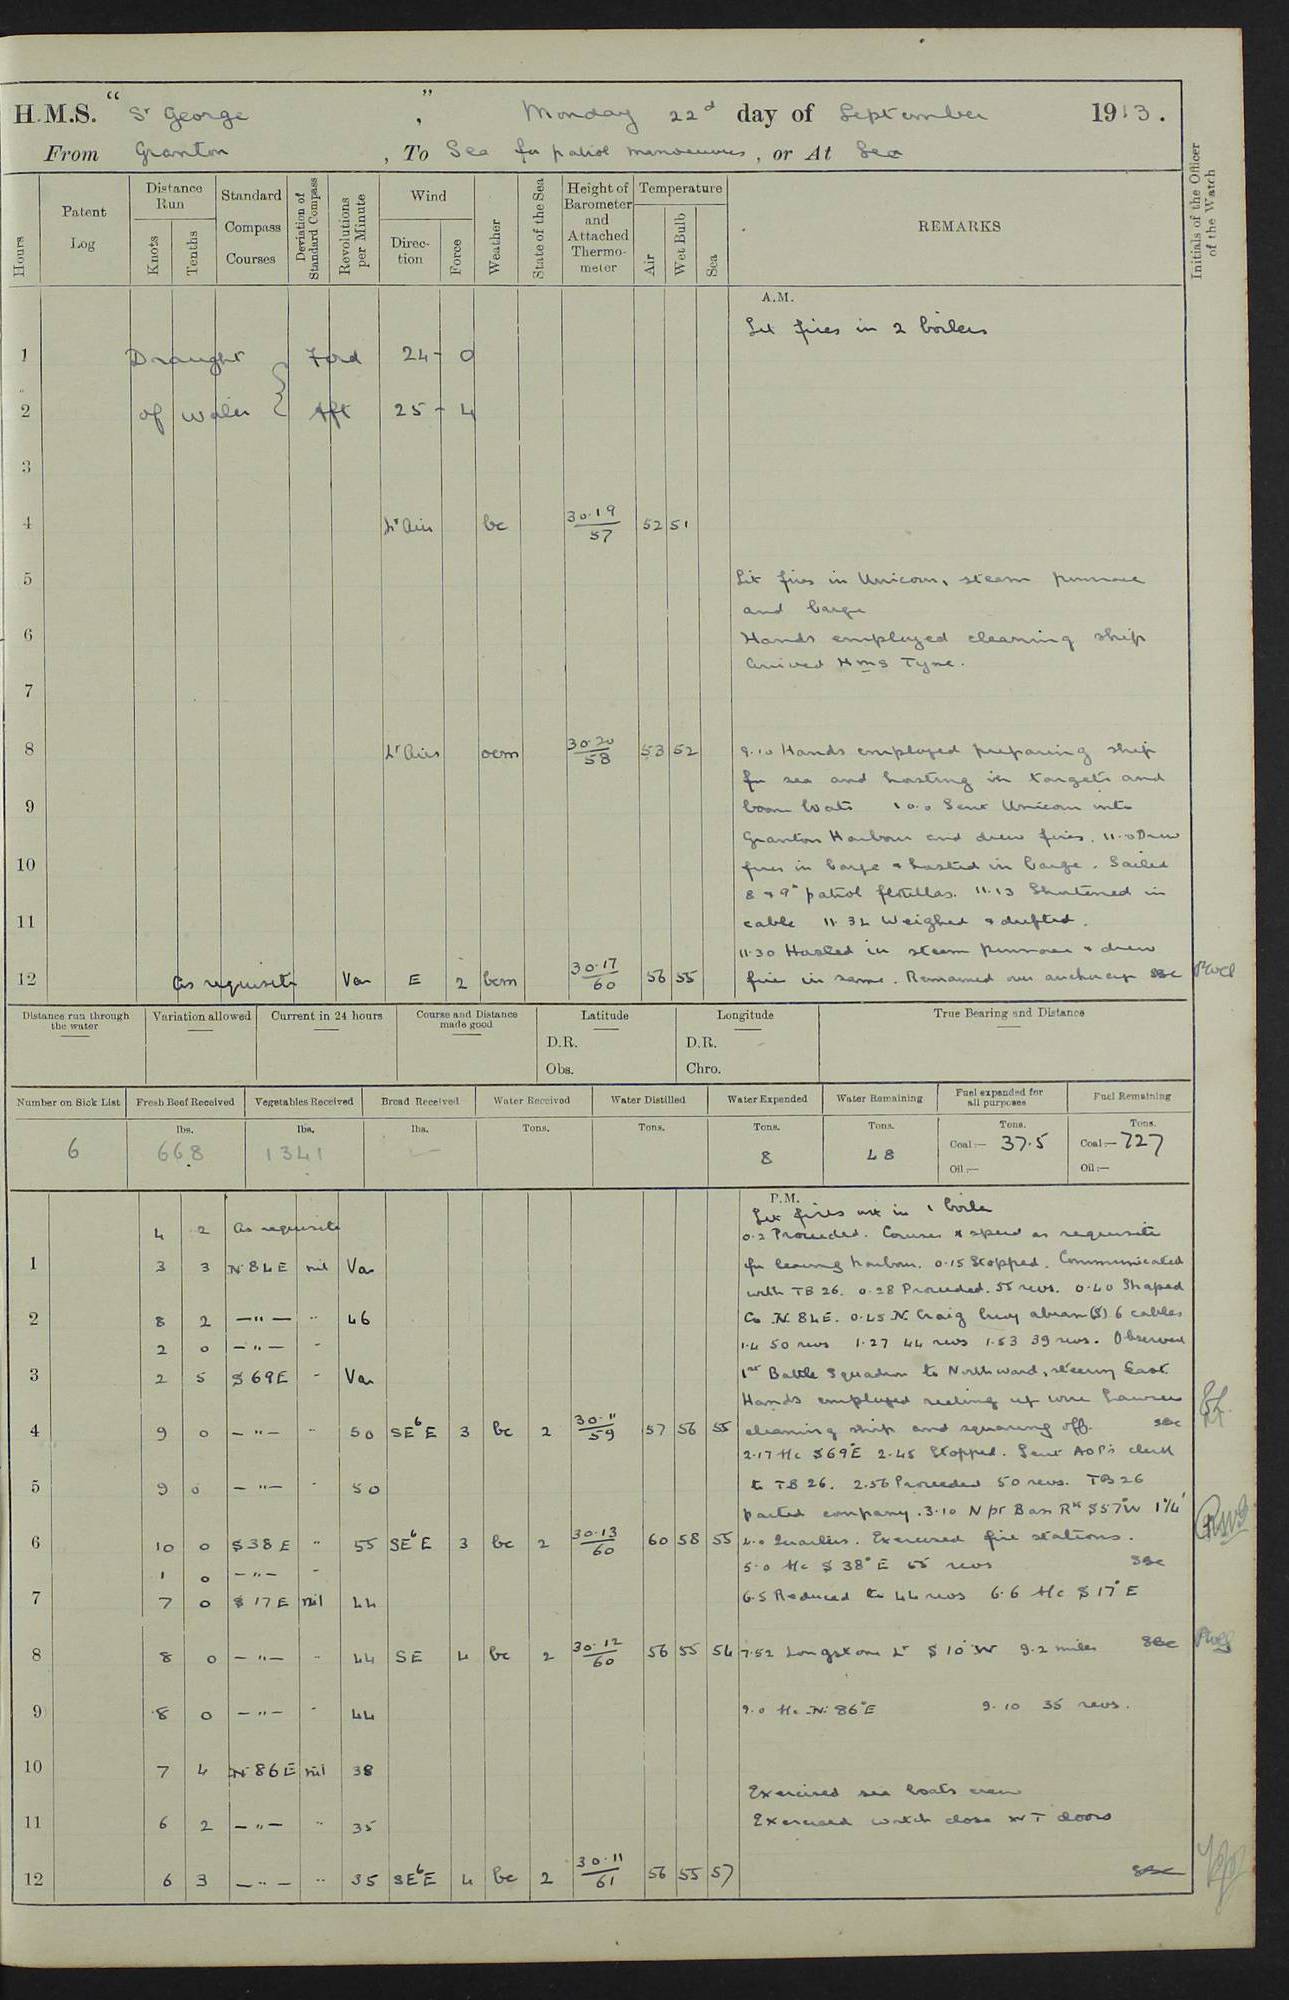 H.M.S. "St George", Monday 22d day of September 1913.
From Granton, To Sea for patrol manoeuvres, or At Sea
Hours
Patent Log
Distance Run
Knots
Tenths
Standard Compass Courses
Deviation of Standard Compass
Revolutions per Minute
Wind
Direction
Force
Weather
State of the Sea
Height of Barometer and Attached Thermometer
Temperature
Air
Wet Bulb
Sea
REMARKS
Initials of the Officer of the Watch
A.M.
Lit fires in 2 boilers
1 Draught Ford 24 - 0
2 of water Aft 25 - 4
3
4 Lt Airs bc 30.19/57 52 51
5 Lit fires in Unicorn, steam pinnace
and barge
6 Hands employed cleaning ship
Arrived HMS Tyne.
7
8 Lt Airs ocm 30.20/58 53 52 9.10 Hands employed preparing ship
for sea and hoisting in targets and
9 boom boats 10.0 Sent Unicorn into
Granton Harbour and drew fires. 11.0 Drew
10 fires in barge & hoisted in barge. Sailed
8 & 9th patrol flotillas. 11.13 Shortened in
11 cable 11.34 Weighed & drifted.
11.30 Hoisted in steam pinnace & drew
12 As requisite Var E 2 bcm 30.17/60 56 55 fires in same. Remained over anchorage SBC
Distance run through the water
Variation allowed
Current in 24 hours
Course and Distance made good
Latitude
D.R.
Obs.
Longitude
D.R.
Chro.
True Bearing and Distance
Number on Sick List
Fresh Beef Received
Vegetables Received
Bread Received
Water Received
Water Distilled
Water Expended
Water Remaining
Fuel expended for all purposes
Fuel Remaining
lbs. lbs. lbs. Tons. Tons. Tons. Tons. Tons. Tons.
6 668 1341 — 8 48 Coal:— 37.5 Coal:— 727
Oil:— Oil:—
P.M.
Lit fires in 1 boiler
4 2 As requisite 0.2 Proceeded. Courses & speed as requisite
1 3 3 N 84 E nil Var for leaving harbour. 0.15 Stopped. Communicated
with TB 26. 0.28 Proceeded. 55 revs. 0.40 Shaped
2 8 2 —"— " 46 Co N. 84 E. 0.45 N. Craig buoy abeam (S) 6 cables
2 0 —"— " 1.4 50 revs 1.27 44 revs 1.53 39 revs. Observed
3 2 5 S 69 E " Var 1st Battle Squadron to Northward, steering East
Hands employed reeling up wire hawsers
4 9 0 —"— " 50 SEbE 3 bc 2 30.11/59 57 56 55 cleaning ship and squaring off. SBC
2.17 A/c S 69° E 2.45 Stopped. Sent AOP's clerk
5 9 0 —"— " 50 to TB 26. 2.56 Proceeded 50 revs. TB 26
parted company. 3.10 N pt Bass Rk S 57° W 1¼'
6 10 0 S 38 E " 55 SEbE 3 bc 2 30.13/60 60 58 55 4.0 Quarters. Exercised fire stations.
1 0 —"— " 5.0 A/c S 38° E 55 revs SBC
7 7 0 S 17 E nil 44 6.5 Reduced to 44 revs 6.6 A/c S 17° E
8 8 0 —"— " 44 SE 4 bc 2 30.12/60 56 55 54 7.52 Longstone Lt S 10° W 9.2 miles SBC
9 8 0 —"— " 44 9.0 A/c N. 86° E 9.10 35 revs.
10 7 4 N 86 E nil 38
Exercised sea boats crew
11 6 2 —"— " 35 Exercised watch close W T doors
12 6 3 —"— " 35 SEbE 4 bc 2 30.11/61 56 55 57 SBC